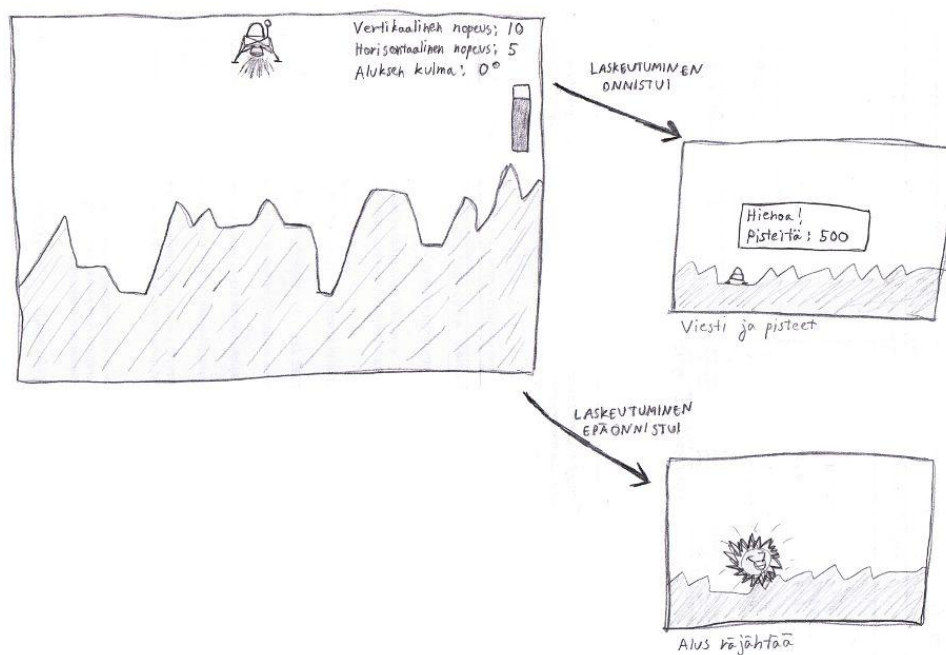 Vertikaalinen nopeus: 10
Horisontaalinen nopeus: 5
Aluksen kulma: 0°
LASKEUTUMINEN
ONNISTUI
Hienoa!
Pisteitä: 500
Viesti ja pisteet
LASKEUTUMINEN
EPÄONNISTUI
Alus räjähtää